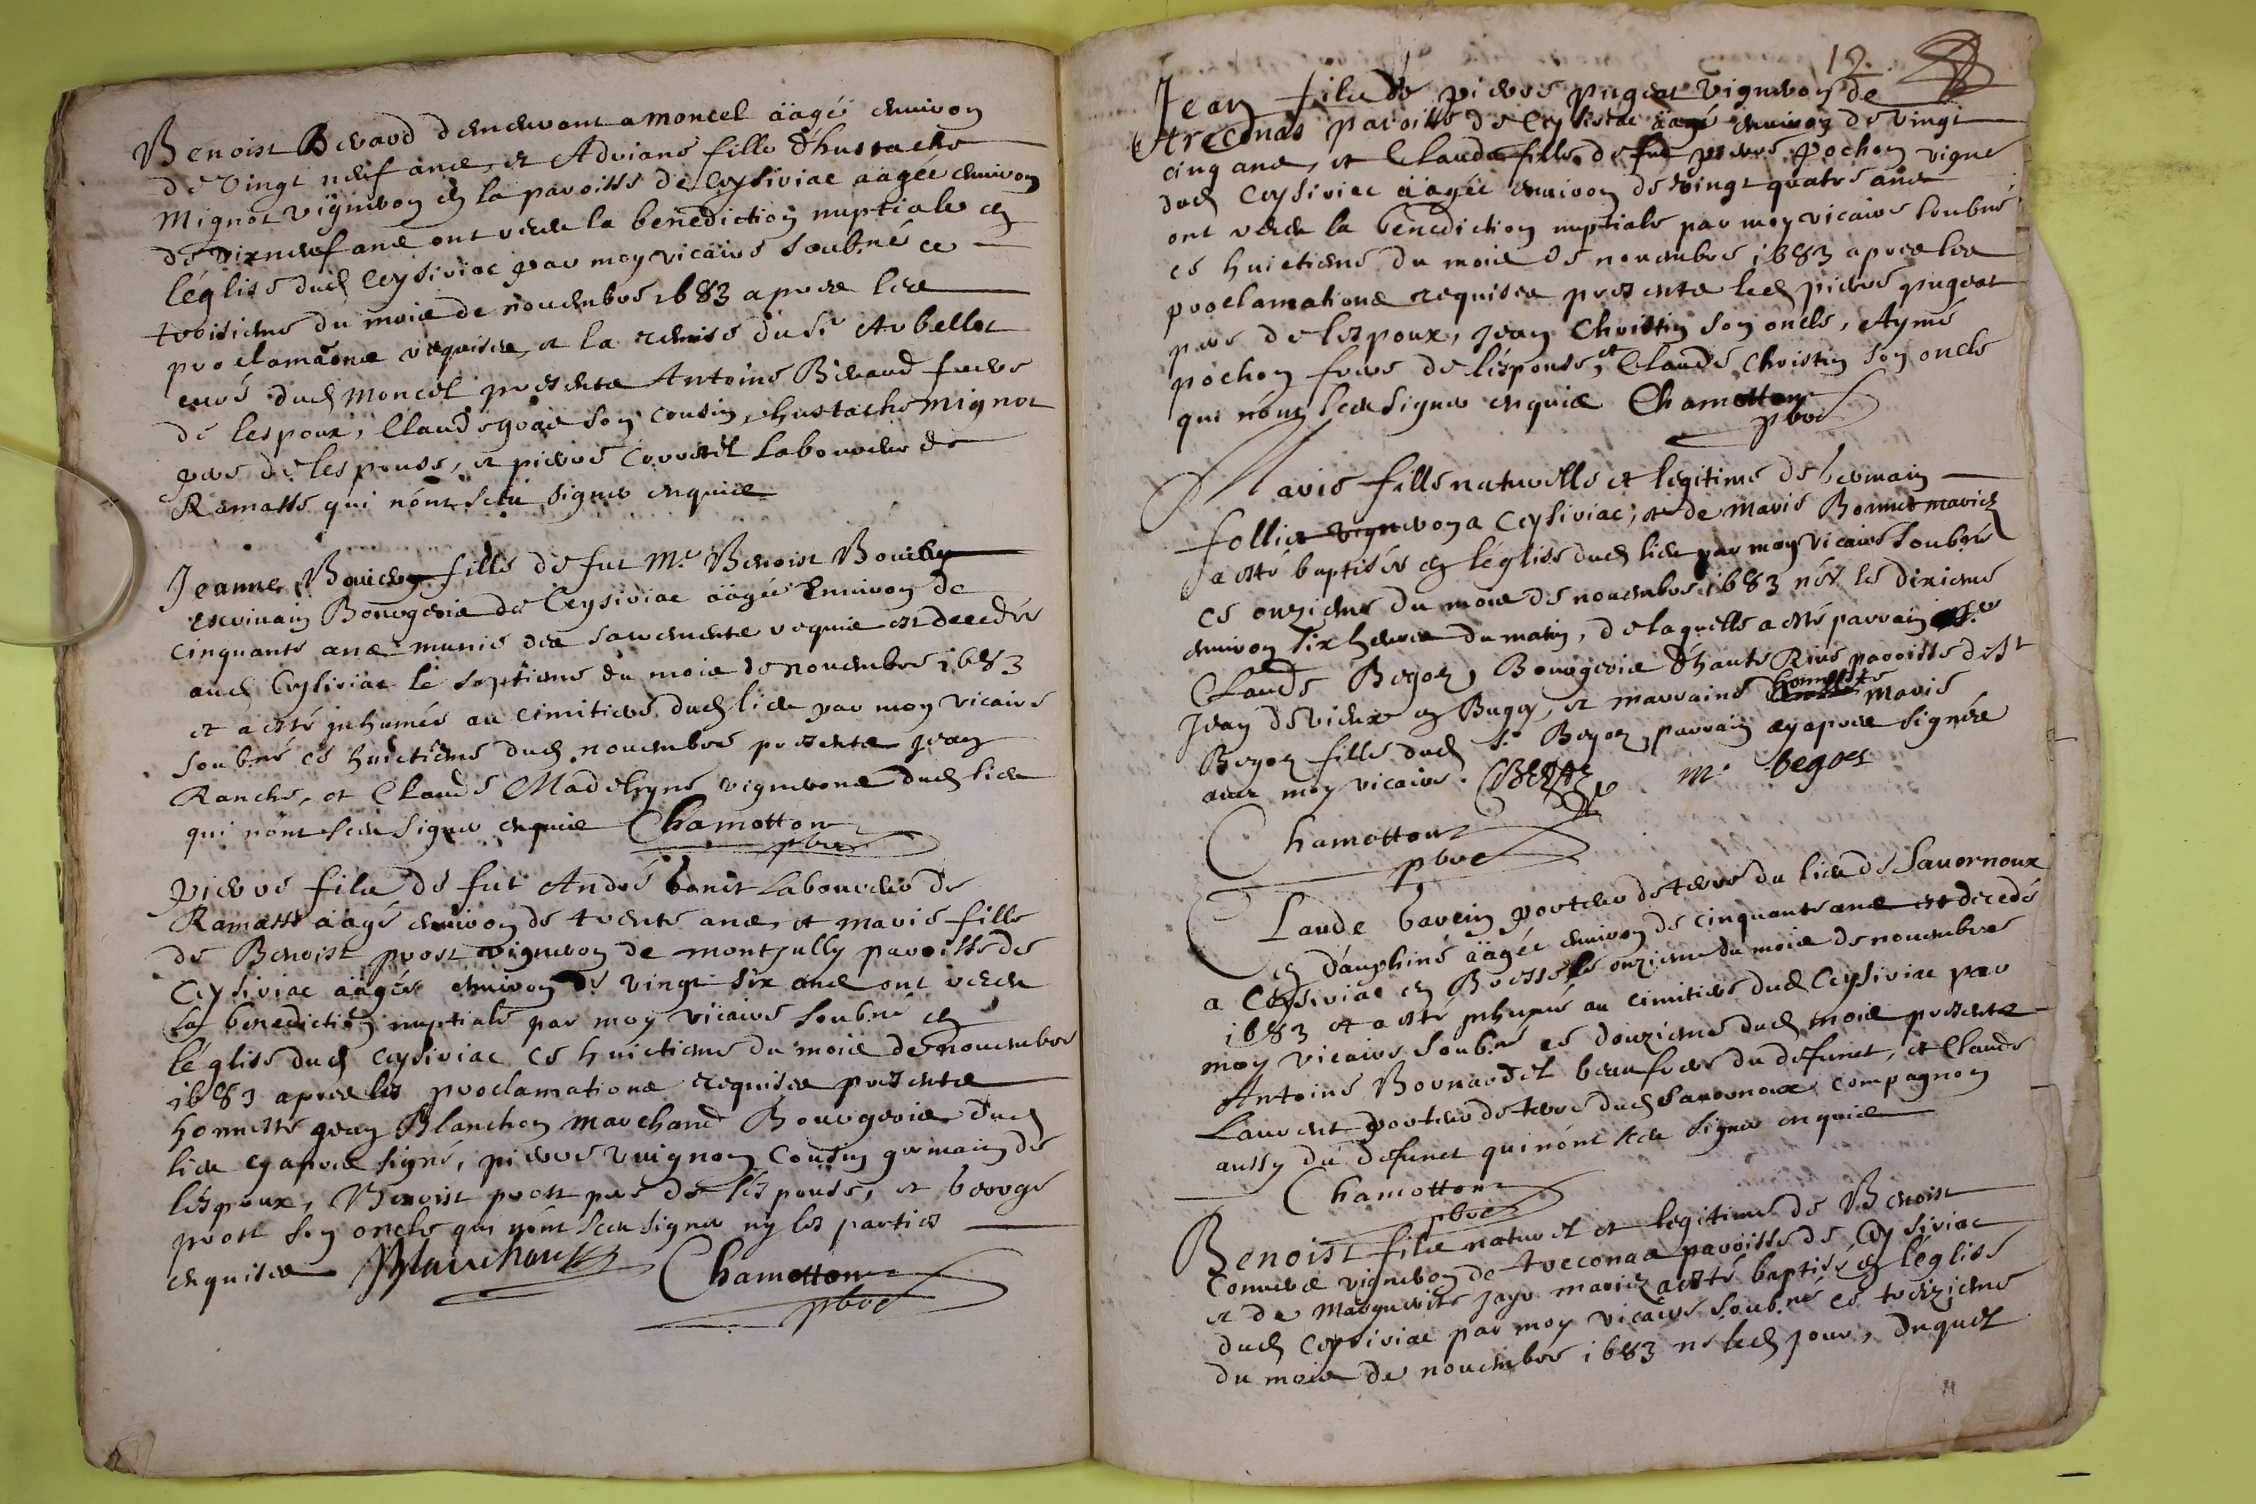 Benoist Beraud demeurant a moncel äagé enuiron
de vingt neuf ans, et Adriane fille d'hustache
Mignot vigneron en la paroisse de Ceysiriac äagée enuiron
de dixneuf ans ont receu la benediction nuptiale en
léglise dud Ceysiriac par moy vicaire soubné ce
troisieme du mois de nouembre 1683 apres les
proclamaons requises, et la remise du Sr Arbellot
curé dud moncel presents Antoine Beraud frere
de lespoux, Claude goais son cousin, hustache Mignot
pere de lespouse, et pierre Corretel Laboureur de
Ramasse qui nónt sceu signer enquis
Jeanne Bouiery fille de fut Me Benoist Bouiery
escriuain Bourgeois de Ceysiriac äagée Enuiron de
cinquante ans munie des sacrements requis est decedée
aud Ceysiriac le septieme du mois de nouembre 1683
et a esté inhumée au cimitiere dud lieu par moy vicaire
soubné ce huictieme dud nouembre presents Jean
Ranche, et Claude Madelyne vignerons dud lieu
qui nónt sceu signer enquis Chamotton
pbre
pierre fils de fut André bonet Laboureur de
Ramasse äagé enuiron de trente ans, et marie fille
de Benoist prost vigneron de montjully paroisse de
Ceysiriac äagée enuiron de vingt six ans ont receu
La benediction nuptiale par moy vicaire soubné en
léglise dud Ceysiriac ce huictieme du mois de nouembre
1683 apres les proclamations requises presents
honneste jean Blanchon marchand Bourgeois dud
lieu cy apres signé, pierre vuignon Cousin germain de
léspoux, Benoist prost pere de léspouse, et George
prost son oncle qui nónt sceu signer ny les parties
enquises Blanchon Chamotton
pbre
12
Jean fils de pierre pugeat vigneron de
treconas paroisse de Ceysiriac äagé enuiron de vingt
cinq ans, et Claude fille de fut pierre Pochon vigne
dud Ceysiriac äagée enuiron de vingt quatre ans
ont receu la benediction nuptiale par moy vicaire soubné
ce huictieme du mois de nouembre 1683 apres les
proclamations requises presents led pierre pugeat
pere de lespoux, Jean Christin son oncle, Aymé
pochon frere de léspouse, et Claude Christin son oncle
qui nónt sceu signer enquis Chamotton
pbre
Marie fille naturelle et legitime de Germain
follict vigneron a Ceysiriac, et de marie Bonnet mariez
a esté baptisée en léglise dud lieu par moy vicaire soubné
ce onzieme du mois de nouembre 1683 née le dixieme
enuiron six heures du matin, de laquelle a esté parrain
Claude Begoz, Bourgeois d'haute Riue paroisse de St
Jean de Vieux en Bugey, et marraine honneste Marie
Begoz fille dud Sr Begoz parrain cy apres signée
auec moy vicaire. M. begoz
Chamotton
pbre
Claude Garcin porteur de terre du lieu de Sauornoux
en dauphiné äagée enuiron de cinquante ans est decedé
a Ceysiriac en Bresse le onzieme du mois de nouembre
1683 et a esté inhumé au cimitiere dud Ceysiriac par
moy vicaire soubné ce douzieme dud mois presents
Antoine Bournardel beaufrere du defunct, et Claude
Laurent porteur de terre dud Sauornoux compagnon
aussy du defunct qui nónt sceu signer enquis
Chamotton
pbre
Benoist fils naturel et legitime de Benoist
Conuers vigneron de treconas paroisse de Ceysiriac
et de Marguerite Jayr mariez a esté baptisé en léglise
dud Ceysiriac par moy vicaire soubné ce treizieme
du mois de nouembre 1683 né led jour, duquel